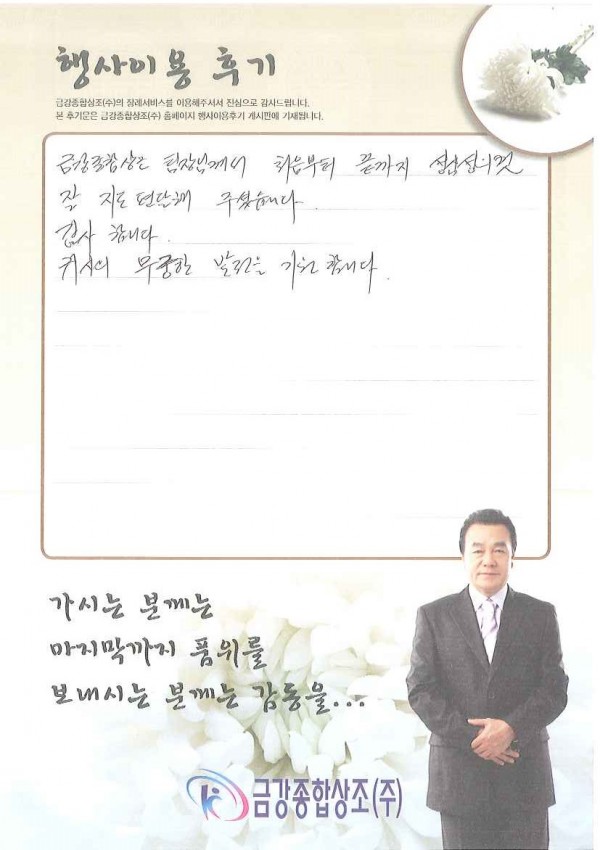 행사이용 후기
금강종합상조(수)의 장례서비스를 이용해주셔서 진심으로 감사드립니다.
본 후기문은 금강종합상조(주) 홈페이지 행사이용후기 게시판에 기재됩니다.
금강종합상조 팀장님께서 처음부터 끝까지 성심성의껏
잘 지도 편달해 주셨습니다.
감사 합니다.
귀사의 무궁한 발전을 기원 합니다.
가시는 분께는
마지막까지 품위를
보내시는 분께는 감동을...
금강종합상조(주)